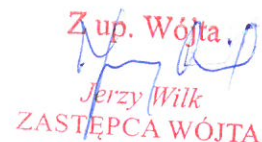 Z up. Wójta
Jerzy Wilk
ZASTĘPCA WÓJTA